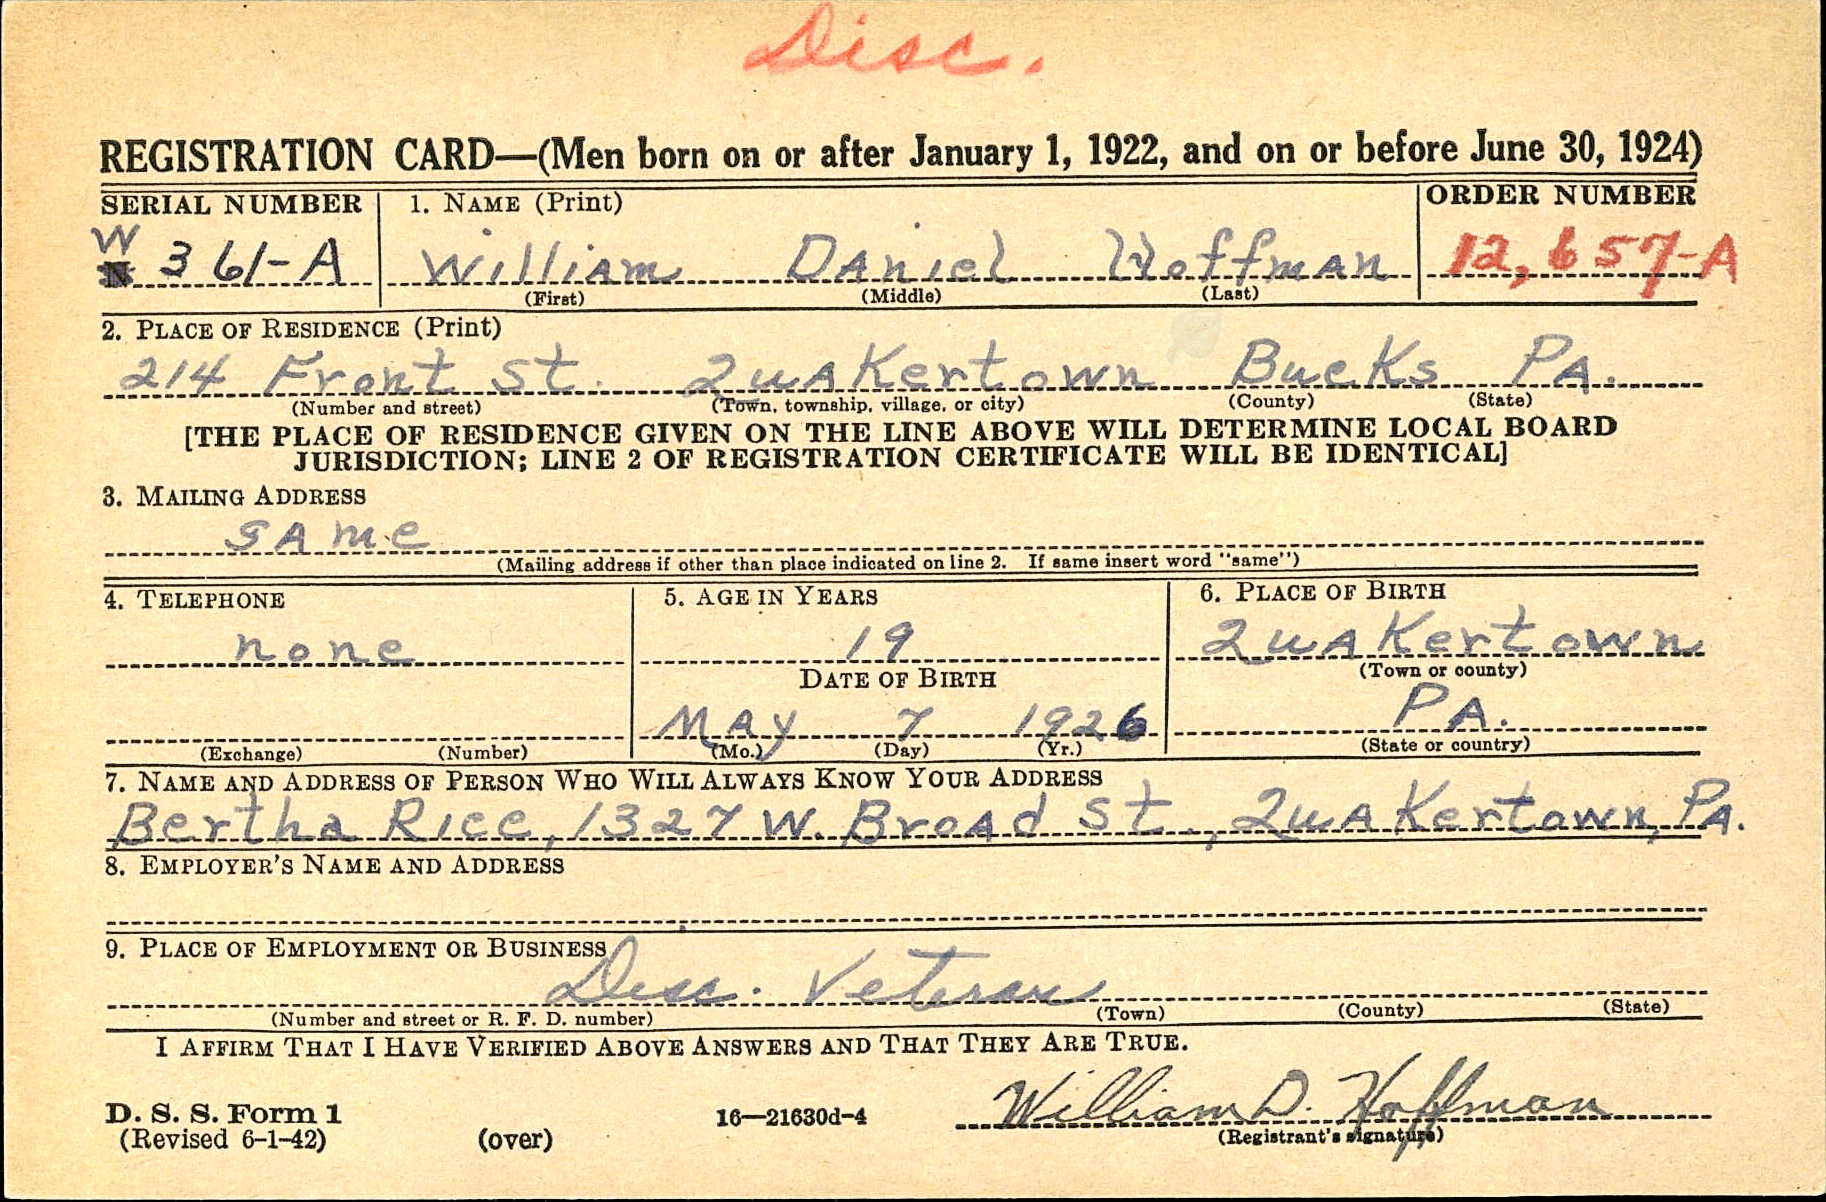 Disc.
REGISTRATION CARD—(Men born on or after January 1, 1922, and on or before June 30, 1924)
SERIAL NUMBER 1. NAME (Print) ORDER NUMBER
W
361-A William Daniel Hoffman 12,657-A
(First) (Middle) (Last)
2. PLACE OF RESIDENCE (Print)
214 Front St. Quakertown Bucks PA.
(Number and street) (Town, township, village, or city) (County) (State)
[THE PLACE OF RESIDENCE GIVEN ON THE LINE ABOVE WILL DETERMINE LOCAL BOARD
JURISDICTION; LINE 2 OF REGISTRATION CERTIFICATE WILL BE IDENTICAL]
3. MAILING ADDRESS
same
(Mailing address if other than place indicated on line 2. If same insert word "same")
4. TELEPHONE 5. AGE IN YEARS 6. PLACE OF BIRTH
none 19 Quakertown
(Town or county)
DATE OF BIRTH
May 7 1926 PA.
(Exchange) (Number) (Mo.) (Day) (Yr.) (State or country)
7. NAME AND ADDRESS OF PERSON WHO WILL ALWAYS KNOW YOUR ADDRESS
Bertha Rice, 1327 W. Broad St., Quakertown, PA.
8. EMPLOYER'S NAME AND ADDRESS
9. PLACE OF EMPLOYMENT OR BUSINESS
Disc. Veteran
(Number and street or R. F. D. number) (Town) (County) (State)
I AFFIRM THAT I HAVE VERIFIED ABOVE ANSWERS AND THAT THEY ARE TRUE.
William D. Hoffman
D. S. S. Form 1 16—21630d-4
(Revised 6-1-42) (over) (Registrant's signature)